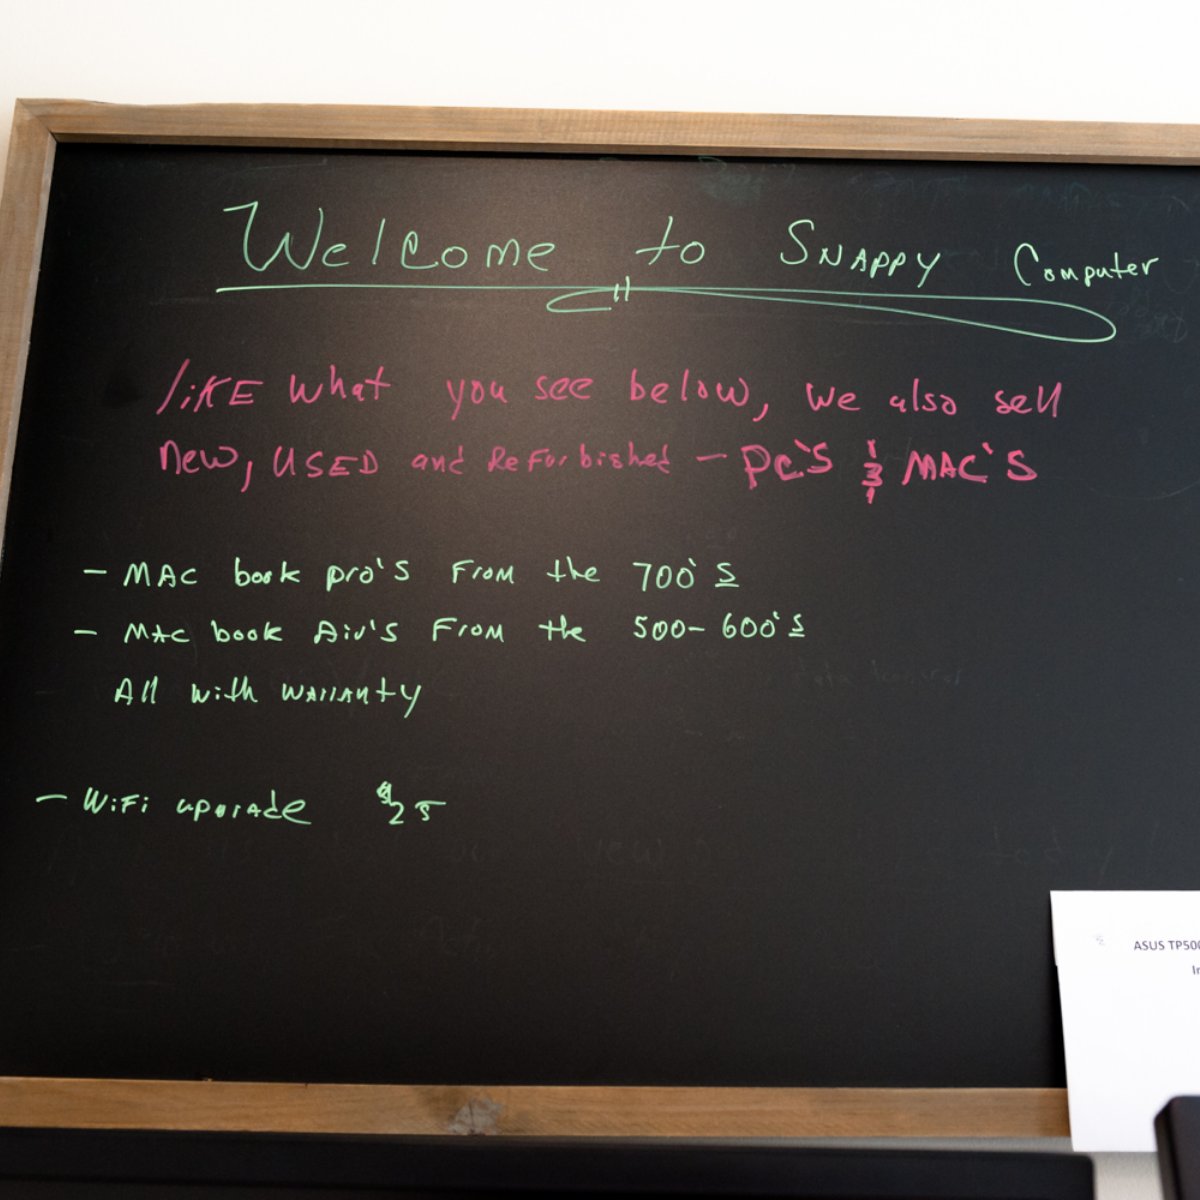 Welcome to Snappy Computer
like what you see below, we also sell
new, USED and Refurbished - PC'S & MAC'S
- MAC book pro's From the 700's
- Mac book Air's From the 500-600's
All with warranty
- WiFi uporade $25
ASUS TP500